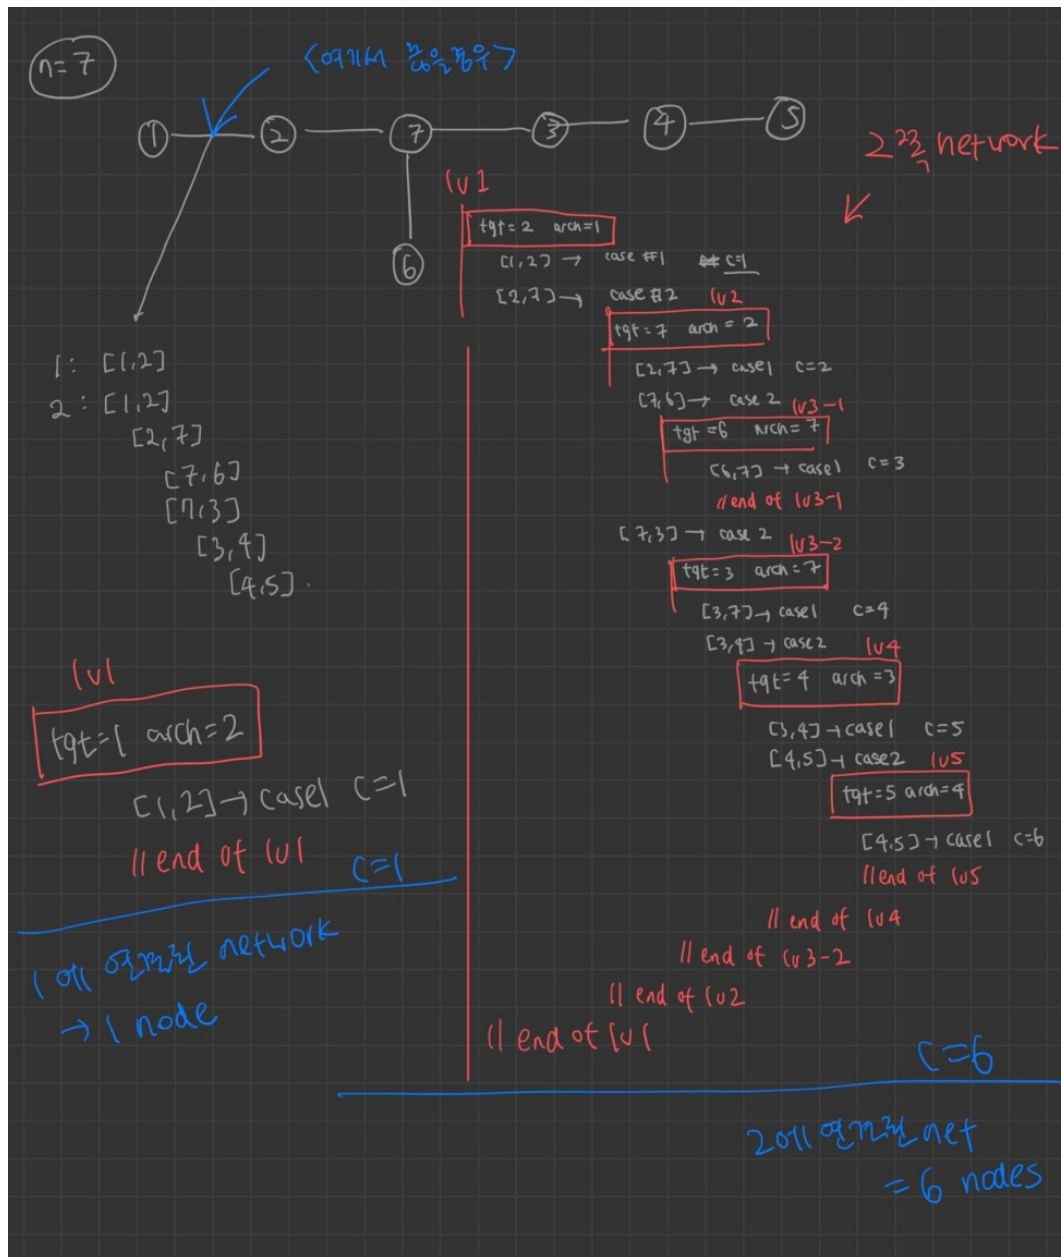 n=7
<여기서 끊을경우>
1 2 7 3 4 5
6
2쪽 network
1: [1,2]
2: [1,2]
[2,7]
[7,6]
[7,3]
[3,4]
[4,5].
lv1
tgt=1 arch=2
[1,2]→ case1 C=1
// end of lv1
C=1
1에 연결된 network
→ 1 node
lv1
tgt=2 arch=1
[1,2] → case #1 c=1
[2,7] → case #2 lv2
tgt=7 arch=2
[2,7] → case1 c=2
[7,6] → case 2 lv3-1
tgt=6 arch=7
[6,7] → case1 c=3
// end of lv3-1
[7,3] → case 2 lv3-2
tgt=3 arch=7
[3,7] → case1 c=4
[3,4] → case2 lv4
tgt=4 arch=3
[3,4] → case1 c=5
[4,5] → case2 lv5
tgt=5 arch=4
[4,5] → case1 c=6
// end of lv5
// end of lv4
// end of lv3-2
// end of lv2
// end of lv1
C=6
2에 연결된 net
= 6 nodes